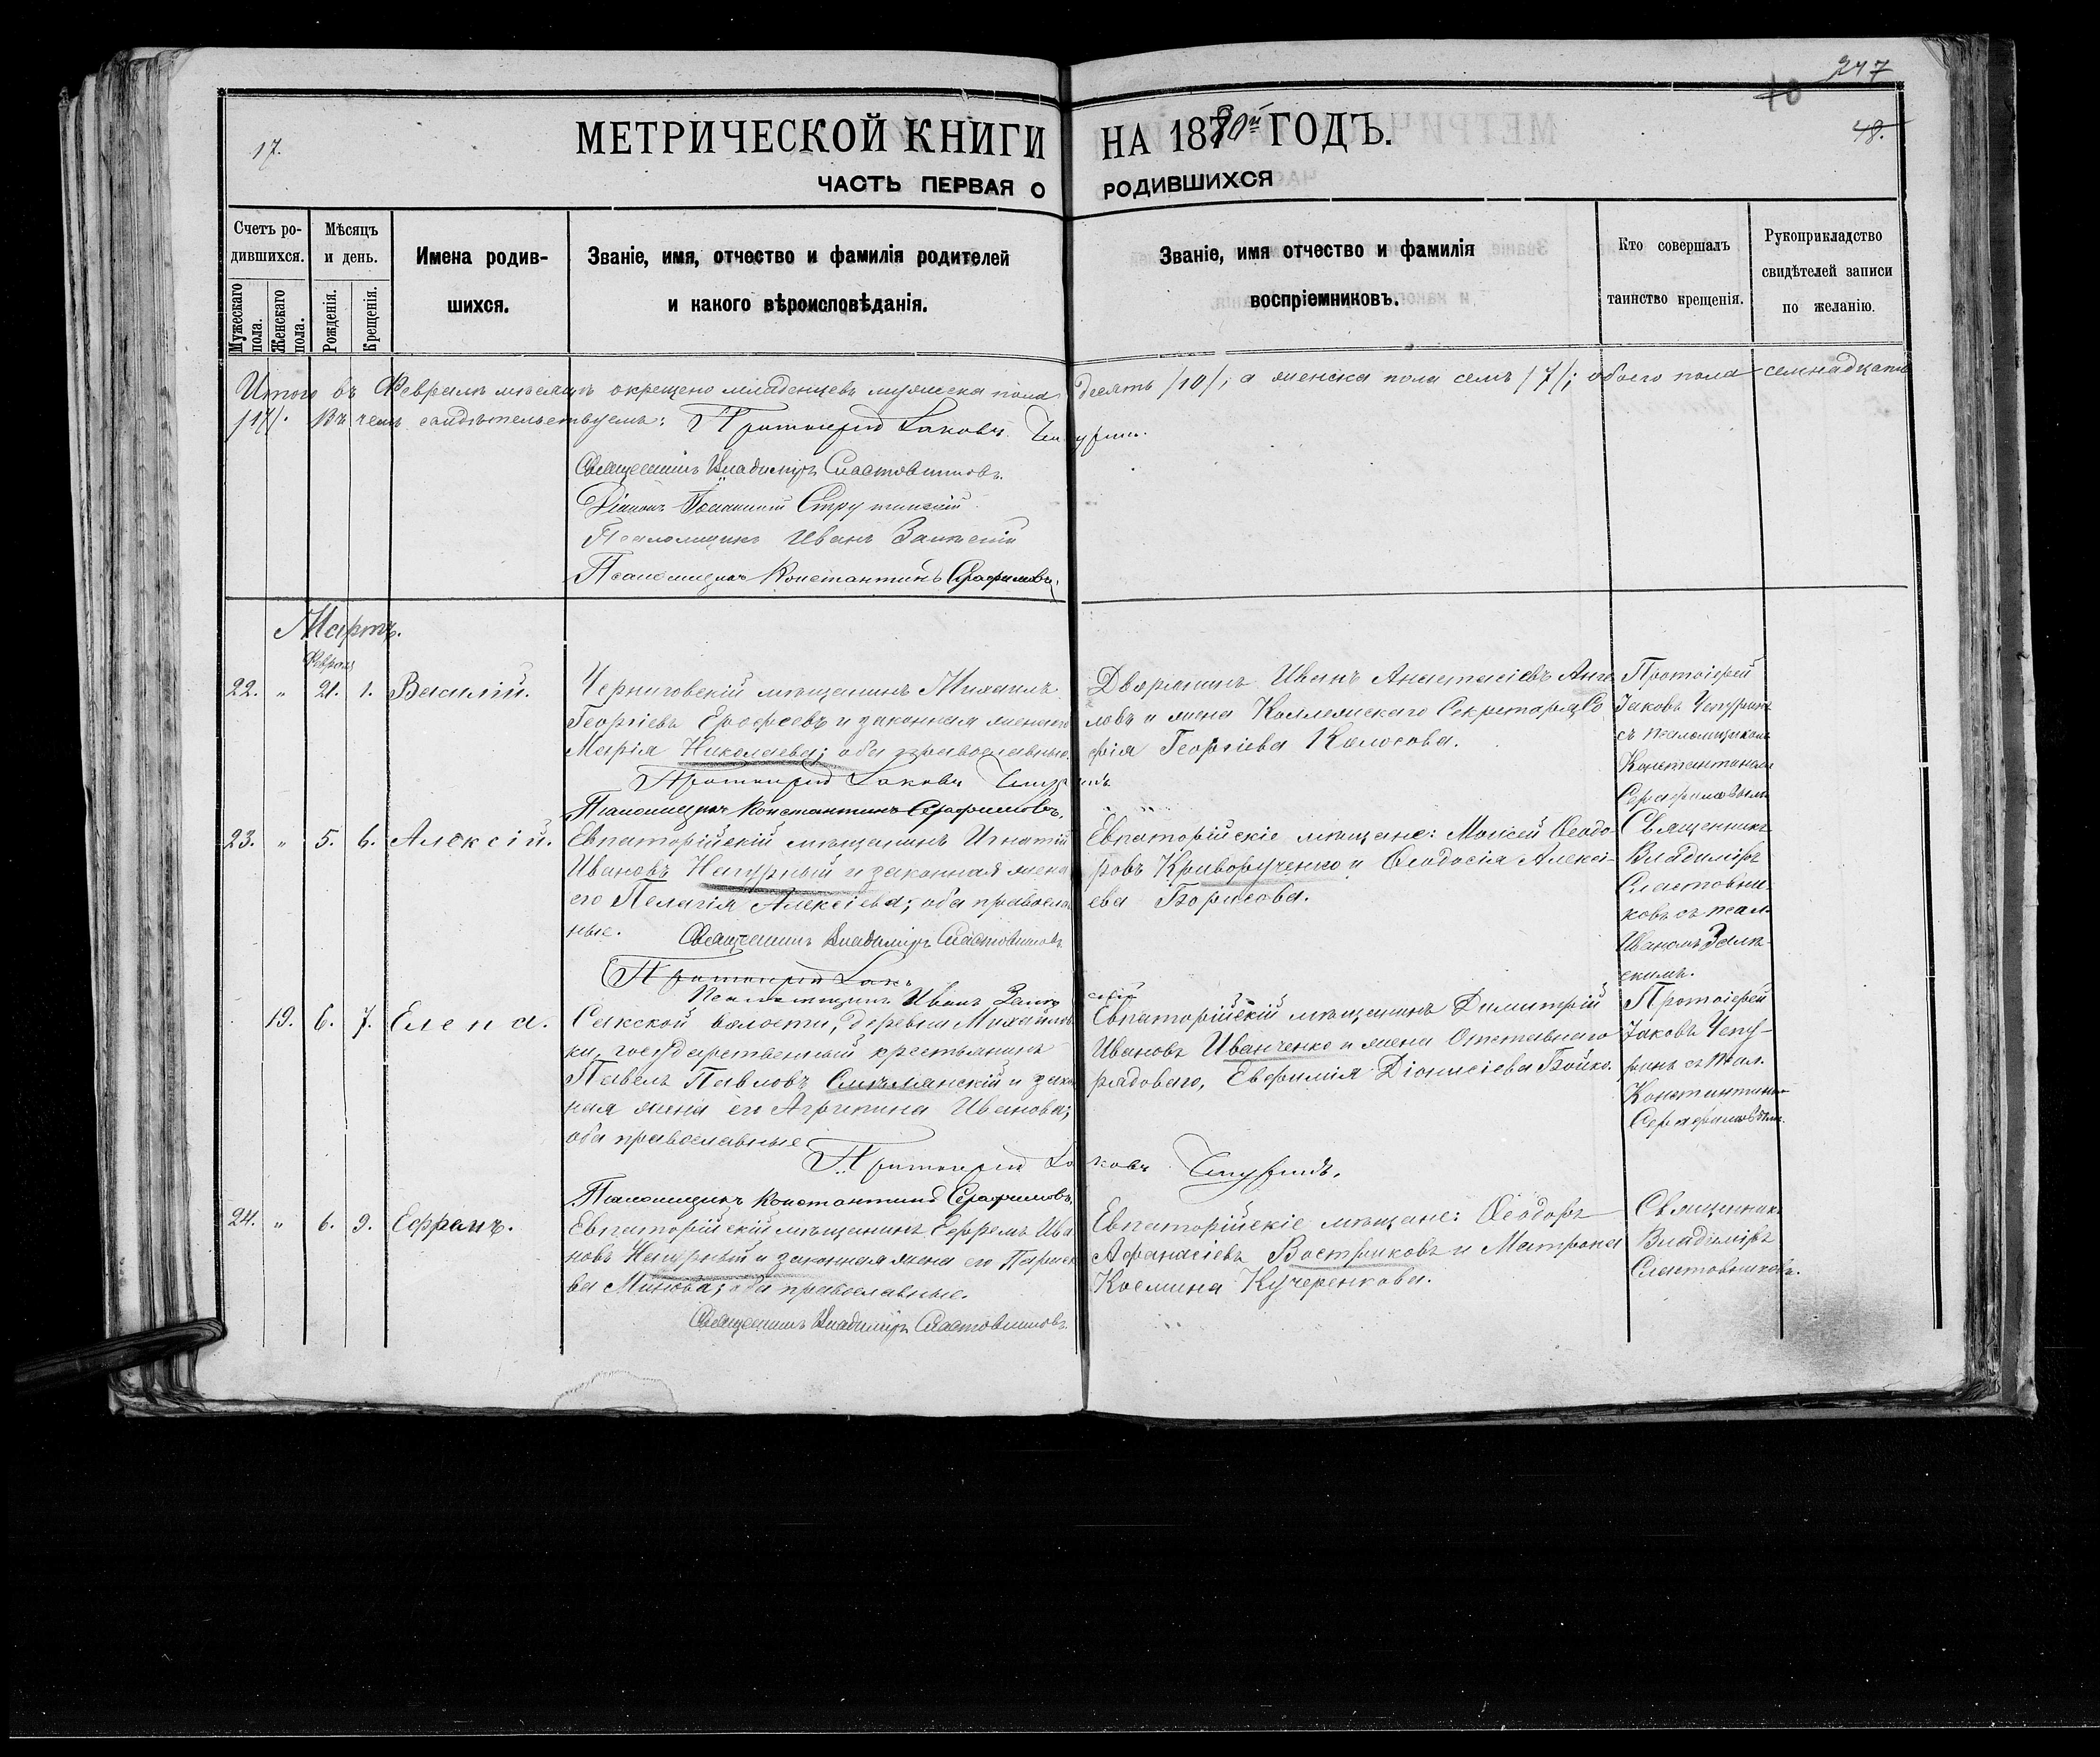 247
10
17.
МЕТРИЧЕСКОЙ КНИГИ НА 1880й ГОДЪ.
48.
ЧАСТЬ ПЕРВАЯ О РОДИВШИХСЯ
Счетъ родившихся.
Мужескаго пола.
Женскаго пола.
Мѣсяцъ и день.
Рожденія.
Крещенія.
Имена родив-
шихся.
Званіе, имя, отчество и фамилія родителей
и какого вѣроисповѣданія.
Званіе, имя отчество и фамилія
воспріемниковъ.
Кто совершалъ
таинство крещенія.
Рукоприкладство
свидѣтелей записи
по желанію.
Итого въ Февралѣ мѣсяцѣ окрещено младенцевъ мужеска пола десять /10/; а женска пола семь /7/; обоего пола семнадцать
/17/. Въ чемъ свидѣтельствуемъ: Протоіерей Іаковъ Чепуринъ.
Священникъ Владиміръ Сластовниковъ.
Діаконъ Струтинскій
Псаломщикъ Иванъ
Псаломщикъ Константинъ Серафимовъ.
Мартъ.
Февраля
22. " 21. 1. Василій.
Черниговскій мѣщанинъ Михаилъ
Георгіевъ Ерофеевъ и законная жена его
Марія Николаева; оба православные.
Протоіерей Іаковъ Чепуринъ
Псаломщикъ Константинъ Серафимовъ.
Дворянинъ Иванъ Анастасіевъ Анге
ловъ и жена Коллежскаго Секретаря Со
фія Георгіева Колосова.
Протоіерей
Іаковъ Чепуринъ
съ псаломщикомъ
Константиномъ
Серафимовымъ
23. " 5. 6. Алексій.
Евпаторійскій мѣщанинъ Игнатій
Ивановъ Нагурный и законная жена
его Пелагія Алексіева; оба православ
ные. Священникъ Владиміръ Сластовниковъ
Протоіерей Іак
Псаломщикъ Иванъ
Евпаторійскіе мѣщане: Моисей Ѳеодо-
ровъ Криворученко и Ѳеодосія Алексі-
ева Борисова.
Священникъ
Владиміръ
Сластовни-
ковъ съ псал.
Иваномъ
скимъ.
19. 6. 7. Елена.
Сакской волости, деревни Михайлов
ки, государственный крестьянинъ
Павелъ Павловъ Смѣлянскій и закон
ная жена его Агрипина Иванова;
оба православные
Протоіерей Іаковъ Чепуринъ.
Псаломщикъ Константинъ Серафимовъ.
Евпаторійскій мѣщанинъ Димитрій
Ивановъ Иванченко и жена Отставнаго
рядоваго, Евфимія Діонисіева Бойко.
Протоіерей
Іаковъ Чепу-
ринъ съ псал.
Константиномъ
Серафимовымъ.
24. " 6. 9. Ефремъ.
Евпаторійскій мѣщанинъ Ефремъ Ива
новъ Нагурный и законная жена его Параске
ва оба православные.
Священникъ Владиміръ Сластовниковъ.
Евпаторійскіе мѣщане: Ѳеодоръ
Аѳанасіевъ Востриковъ и Матрона
Космина Кучеренкова.
Священникъ
Владиміръ
Сластовниковъ.